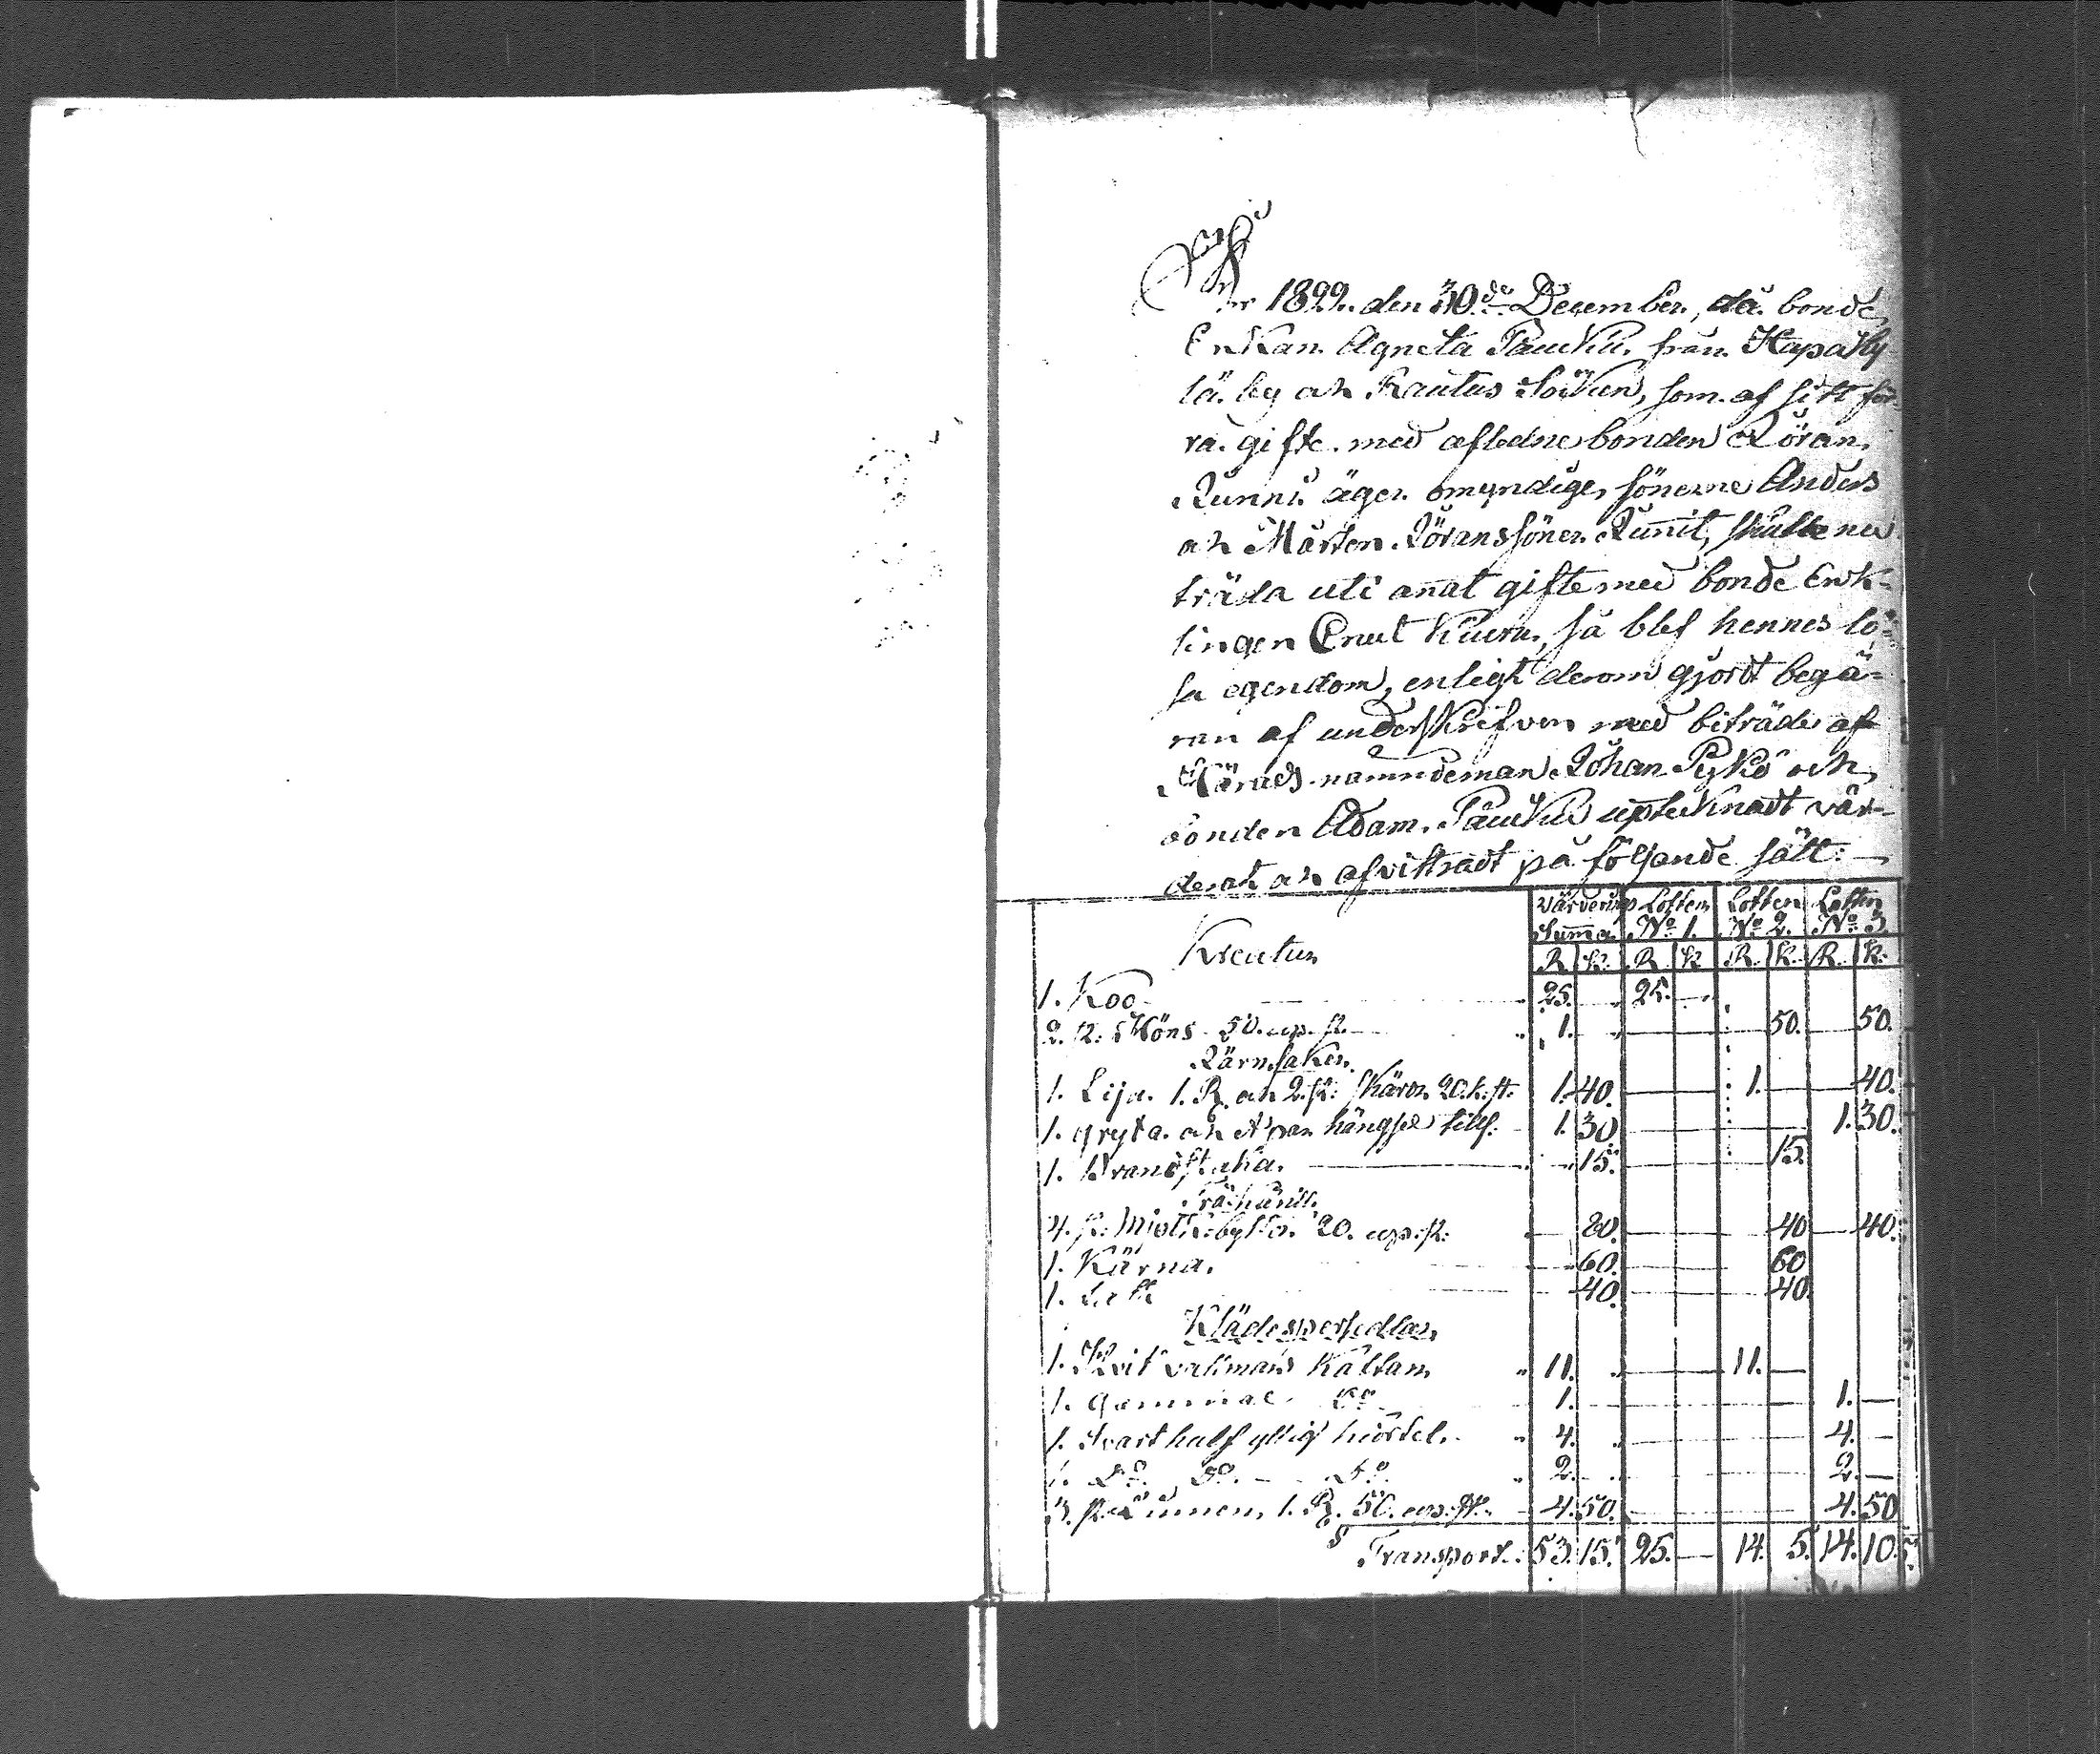 År 1822. den 30de December, då bonde
Enkan Agneta Paukku. från Kapaky
lä. by och Kautus Sokun, som af sitt för
ra. gifte. med afledne bonden Jöran,
Junni. äger omyndige, sönerne Anders
och Mårten. Jöranssöner. Junit, skulle nu
träda uti annat gifte med bonde Enk-
lingen Cnut Kuru, så blef hennes lö-
sa egendom, enligt derom gjordt begä-
ran af underskrifven med biträde af
Härads nämndeman Johan Pykö och
bonden Adam. Paukku uptecknadt vär-
derat och afvittradt på följande sätt:
Värdering Lotten Lotten Lotten
Summa. No 1. No 2. No 3.
Kreatur R. K. R K R. K. R. K.
1. Koo 25. 25. —
2. st. Höns 50. cop. st. 1. 50. 50.
Järnsaker.
1. Lija. 1. R. och 2. st: skäror 20. k. st. 1. 40. 1. 40.
1. gryta. och hängsel till. 1. 30. 1. 30.
1. Brandstaka. 15. 15.
Trähuill.
4. st: Mjölkbyttor. 20. cop. st: 80. 40 40.
1. Kärna. 60. 60
1. 40. 40.
Klädespersedlar
1. Hvit valmans Kaftan 11. 11. —
1. gammal Do 1. 1. —
1. Svart half yllig kiortel. 4. 4. —
1. Do. Do. — Do. 2. 2. —
3. st. Linnen, 1. R. 50. cop. st. 4. 50. 4. 50
Transport. 53. 15. 25. — 14. 5. 14. 10.